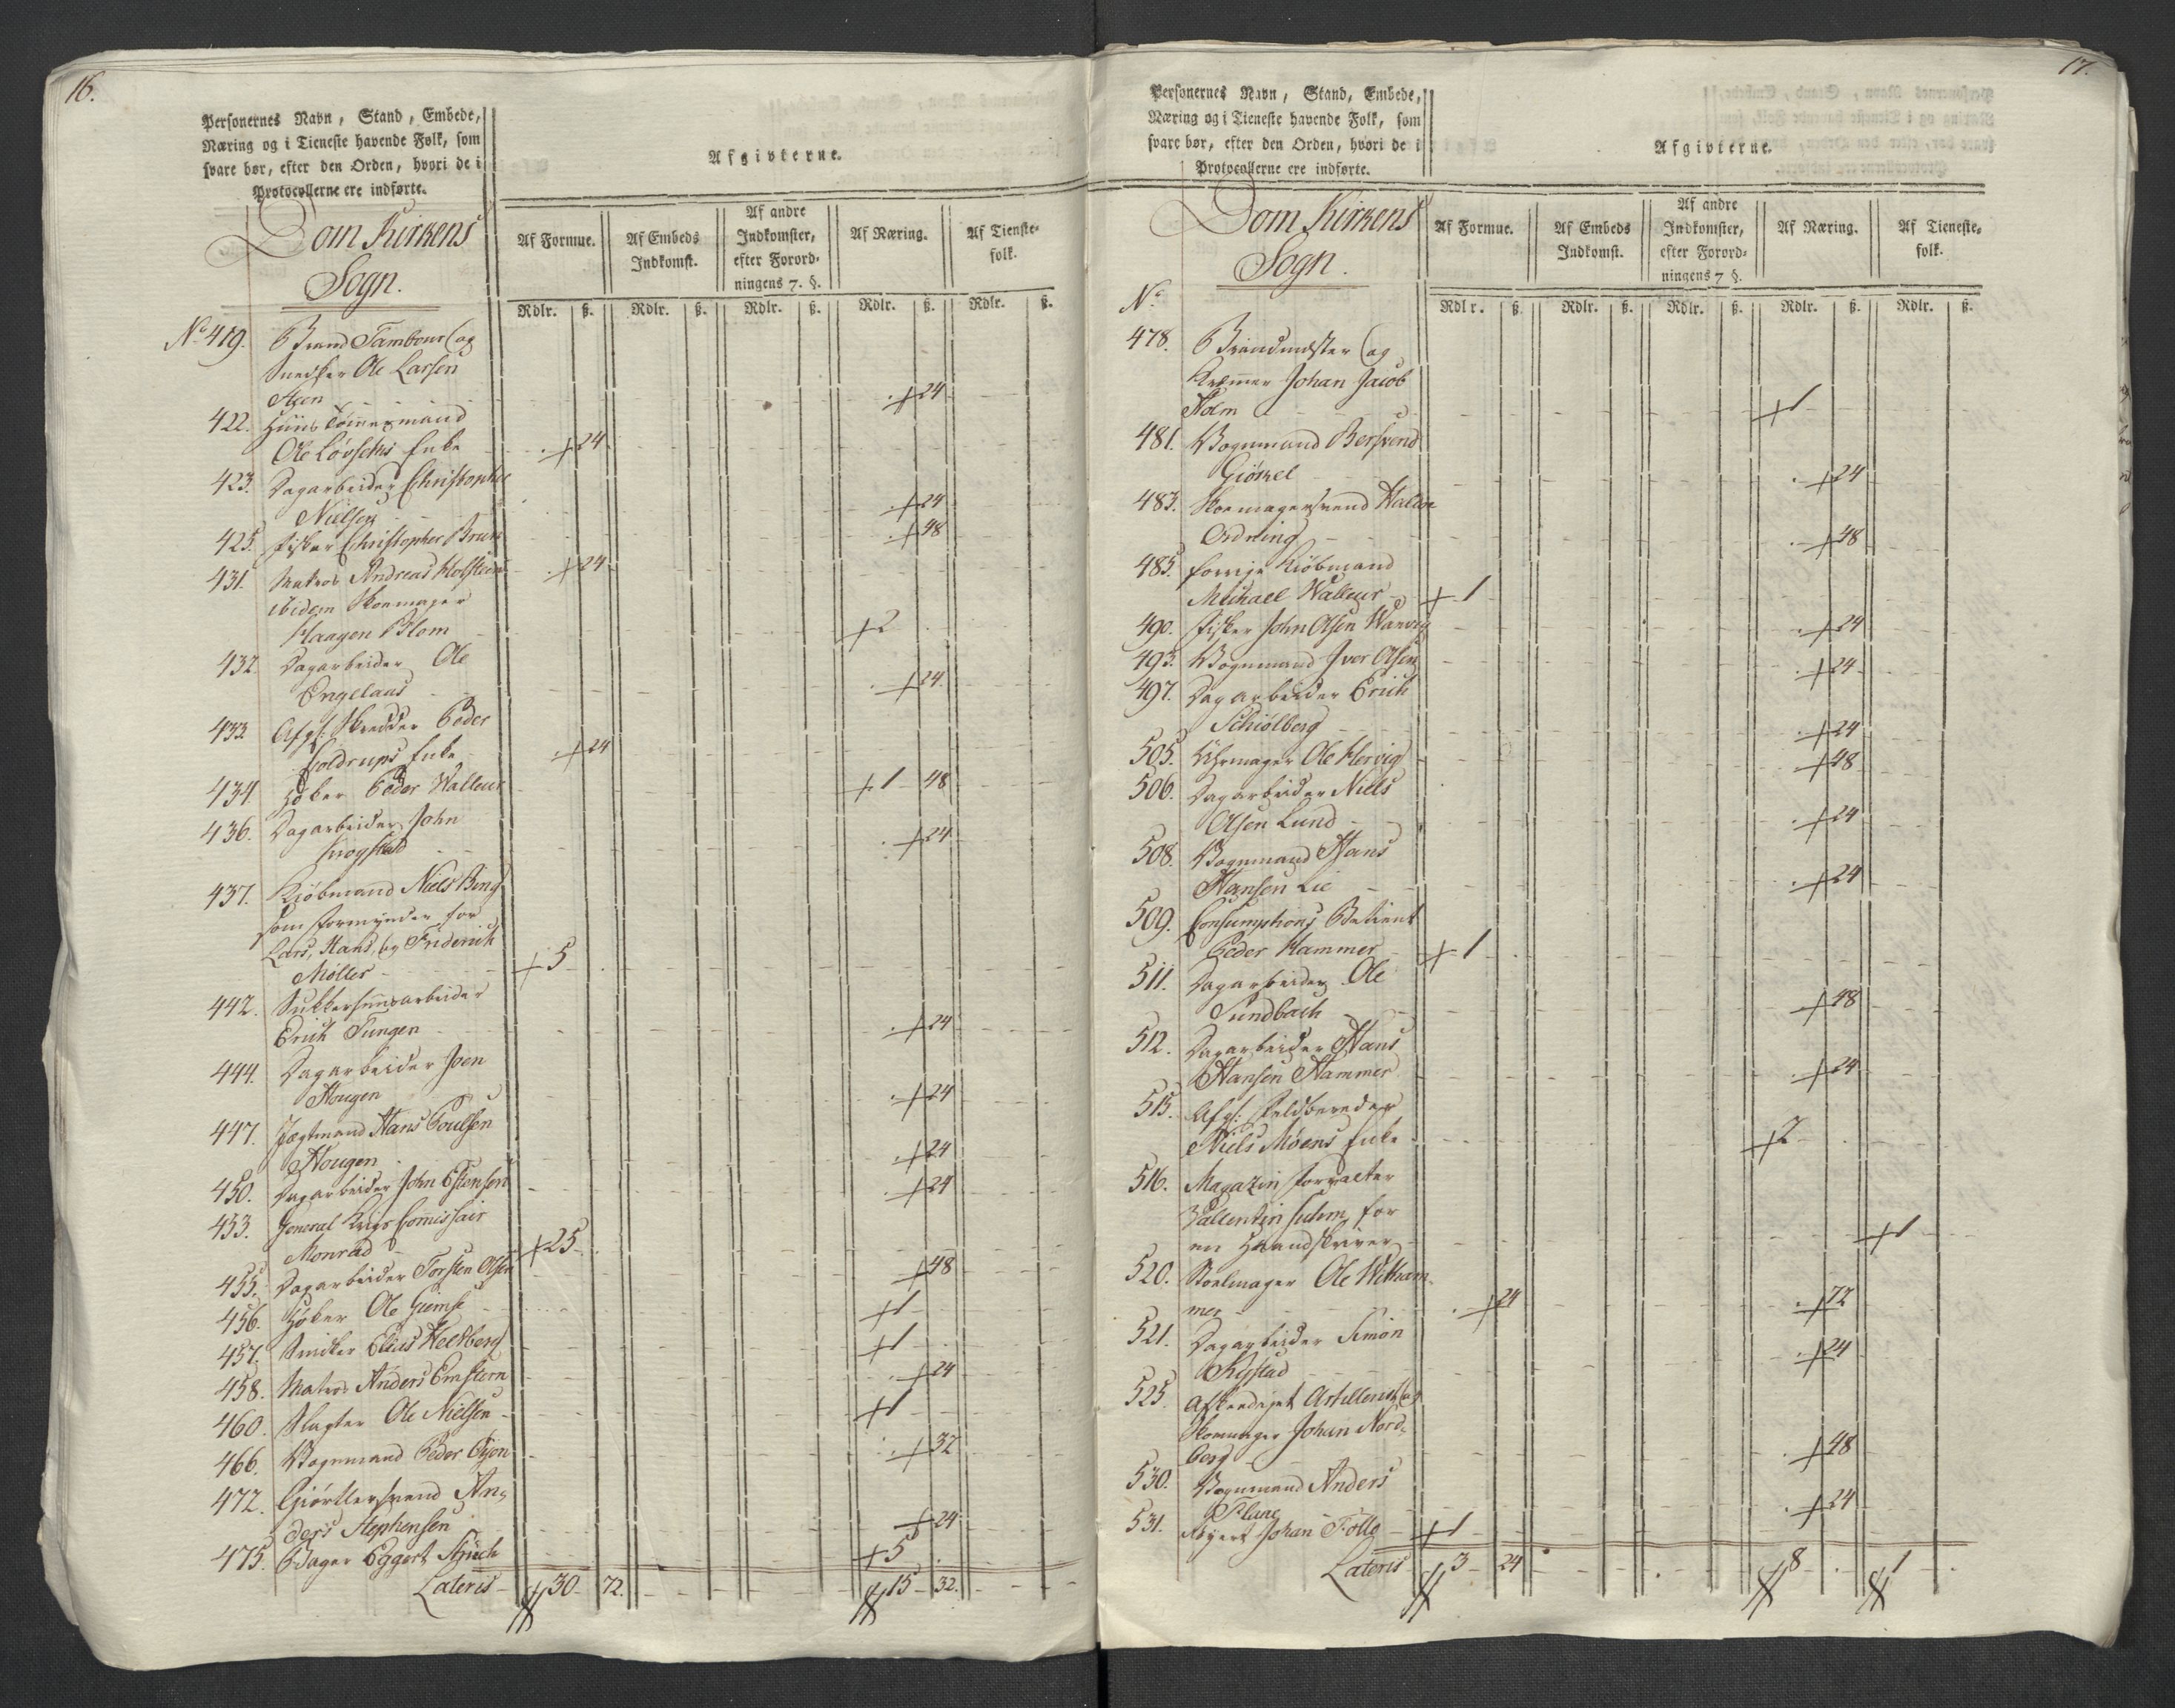 16.
Personernes Navn, Stand, Embede,
Næring og i Tieneste havende Folk, som
svare bør, efter den Orden, hvori de i
Protocollerne ere indførte.
Afgivterne.
Dom Kirkens
Sogn.
Af Formue.
Af Embeds
Indkomst.
Af andre
Indkomster,
efter Forord-
ningens 7. §.
Af Næring.
Af Tieneste-
folk.
Rdlr. ß. Rdlr. ß. Rdlr. ß. Rdlr. ß. Rdlr. ß.
No 419. Brand Tambour og
Snedker Ole Larsen
Steen 24
422. Huus Tømmermand
Ole Løvseths Enke 24
423. Dagarbeider Christopher
Nielsen 24
425. Fisker Christopher Bruun 48
431. Matros Andreas Holstein 24
ibidem Skoemager
Haagen Blom 2
432. Dagarbeider Ole
Engelaus 24
433 Afg: Skredder Peder
Foldrups Enke 24
434. Høker Peder Walleur 1 48
436. Dagarbeider John
Krogstad 24
437. Kiøbmand Niels Beng
som Formynder for
Lars, Hans, og Friderich
Møller 5
442. Sukkerhuusarbeider
Erich Tungen 24
444. Dagarbeider Iven
Hougen 24
447. Jægtmand Hans Poulsen
Hougen 24
450. Dagarbeider John Estensen 24
453. General Krigs Commissair
Monrad 25
455. Dagarbeider Torsten Olsen 48
456. Høker Ole Giemse 1
457. Snidker Elias Heltberg 1
458. Matros Anders Emstern 24
460. Slagter Ole Nielsen 1
466. Vognmand Peder Oyen 32
472. Giørtlersvend An-
ders Stephensen 24
475. Bager Eggert Stüch 5
Lateris 30 72. 15 32.
17.
Personernes Navn, Stand, Embede,
Næring og i Tieneste havende Folk, som
svare bør, efter den Orden, hvori de i
Protocollerne ere indførte.
Afgivterne.
Dom Kirkens
Sogn.
Af Formue.
Af Embeds
Indkomst.
Af andre
Indkomster,
efter Forord-
ningens 7 §.
Af Næring.
Af Tieneste-
folk.
No
Rdlr. ß. Rdlr. ß. Rdlr. ß. Rdlr. ß. Rdlr. ß.
478. Brandmester og
Kræmer Johan Jacob
Holm 1
481. Vognmand Bersvend
Giørkel 24
483. Skoemagersvend Haldor
Ordning 48
485. forrige Kiøbmand
Michael Walleur 1
490. Fisker John Olsen Wanvig 24
493. Vognmand Iver Olsen 24
497. Dagarbeider Erich
Schiølberg 24
505. Uhrmager Ole Hervig 48
506. Dagarbeider Niels
Olsen Lund 24
508. Vognmand Hans
Hansen Lie 24
509. Consumptions Betient
Peder Hammer 1
511. Dagarbeider Ole
Sundbach 48
512. Dagarbeider Hans
Hansen Hammer 24
515. Afg: Feldbereder
Niels Møens Enke 2
516. Magazin forvalter
Vallentin Suhm for
en Haandskriver 1
520. Stoelmager Ole Witham-
mer 24 72
521. Dagarbeider Simon
Rystad 24
525. Afskediget Artillerist og
Skoemager Johan Nord-
berg 48
530. Vognmand Anders
Flane 24
531. Johan Follo 1
Lateris 3 24 8 1